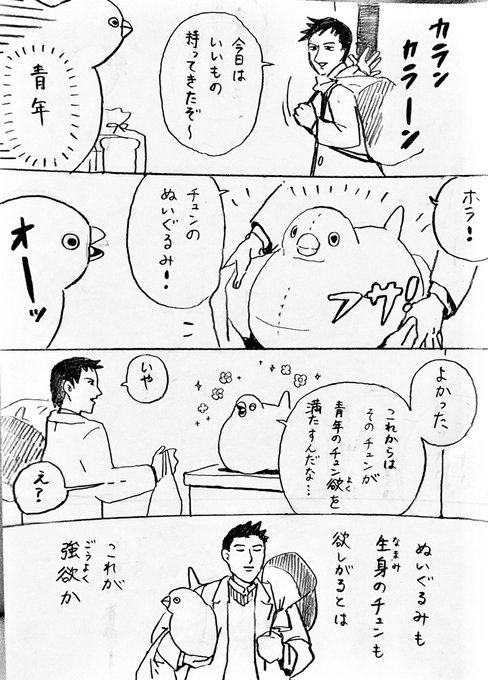 カラン
カラーン
今日は
いいもの
持ってきたぞ〜
青年
ホラ!
フサ!
チュンの
ぬいぐるみ!
オーッ
よかった
これからは
そのチュンが
青年のチュン欲を
よく
満たすんだな…
いや
え?
ぬいぐるみも
生身のチュンも
なまみ
欲しがるとは
これが
強欲か
ごうよく